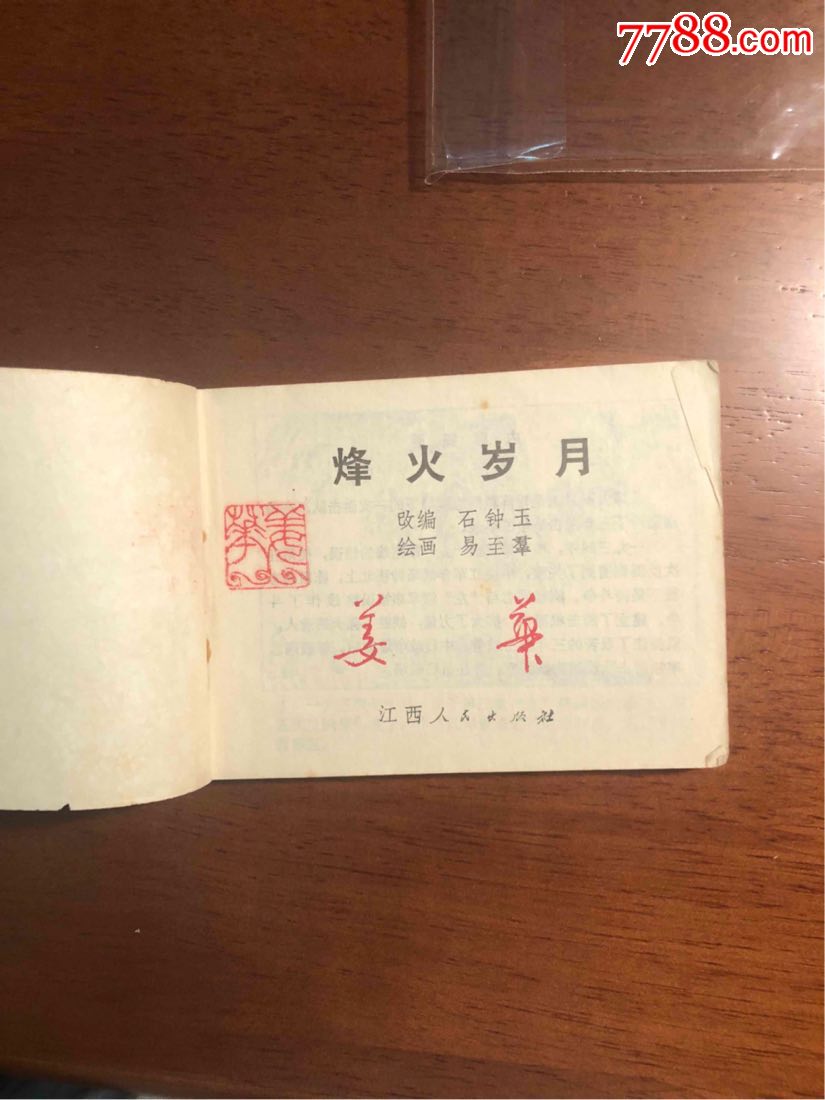 7788.com
烽火岁月
改编 石钟玉
绘画 易至羣
姜
江西人民出版社